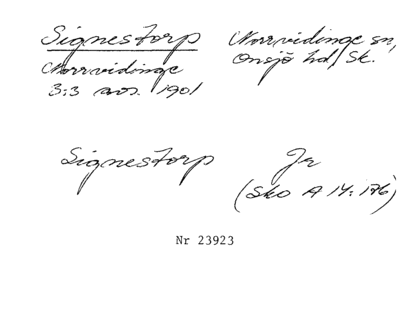 Signestorp Norrvidinge sn,
Norrvidinge Onsjö hd, Sk.
3:3 avs. 1901
Signestorp Jr
(Sko A 14:176)
Nr 23923